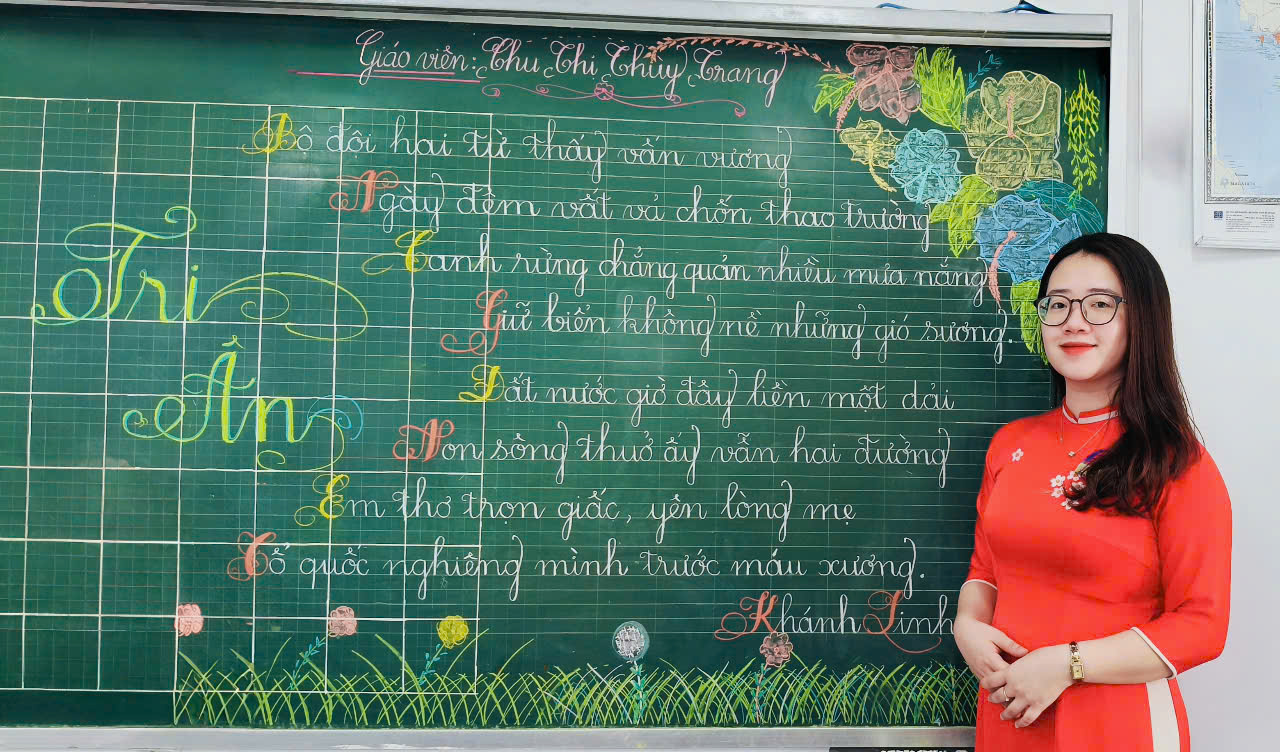 Giáo viên: Chu Thị Thùy Trang
Tri
Ân
Bộ đội hai từ thấy vấn vương
Ngày đêm vất vả chốn thao trường
Canh rừng chẳng quản nhiều mưa nắng
Giữ biển không nề những gió sương.
Đất nước giờ đây liền một dải
Non sông thuở ấy vẫn hai đường
Em thơ trọn giấc, yên lòng mẹ
Tổ quốc nghiêng mình trước máu xương.
Khánh Linh